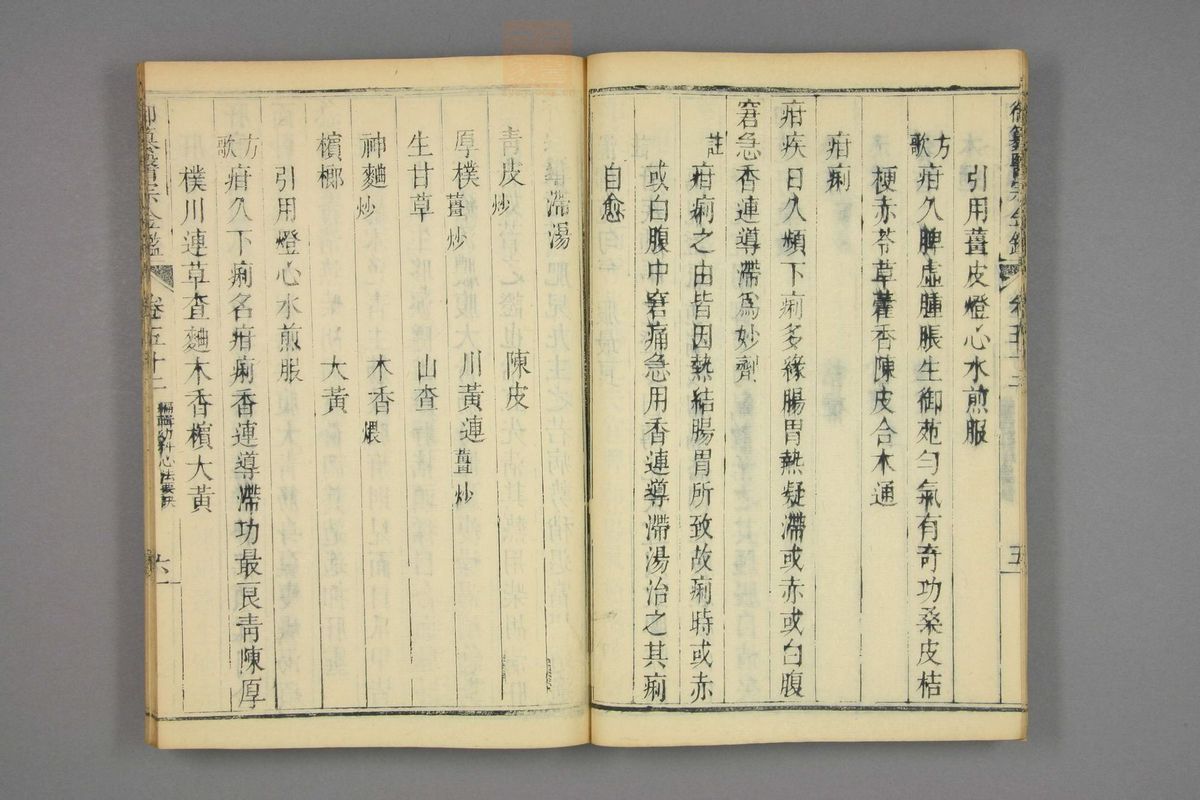 御纂醫宗金鑑 卷五十二 五
引用薑皮燈心水煎服
方歌 疳久脾虛腫脹生御苑勻氣有奇功桑皮桔
梗赤苓草藿香陳皮合木通
疳痢
疳疾日久頻下痢多緣腸胃熱凝滯或赤或白腹
窘急香連導滯爲妙劑
註 疳痢之由皆因熱結腸胃所致故痢時或赤
或白腹中窘痛急用香連導滯湯治之其痢
自愈
香連導滯湯
青皮炒 陳皮
厚樸薑炒 川黃連薑炒
生甘草 山查
神麯炒 木香煨
檳榔 大黃
引用燈心水煎服
方歌 疳久下痢名疳痢香連導滯功最良青陳厚
樸川連草查麯木香檳大黃
御纂醫宗金鑑 卷五十二 編輯幼科心法要訣 六